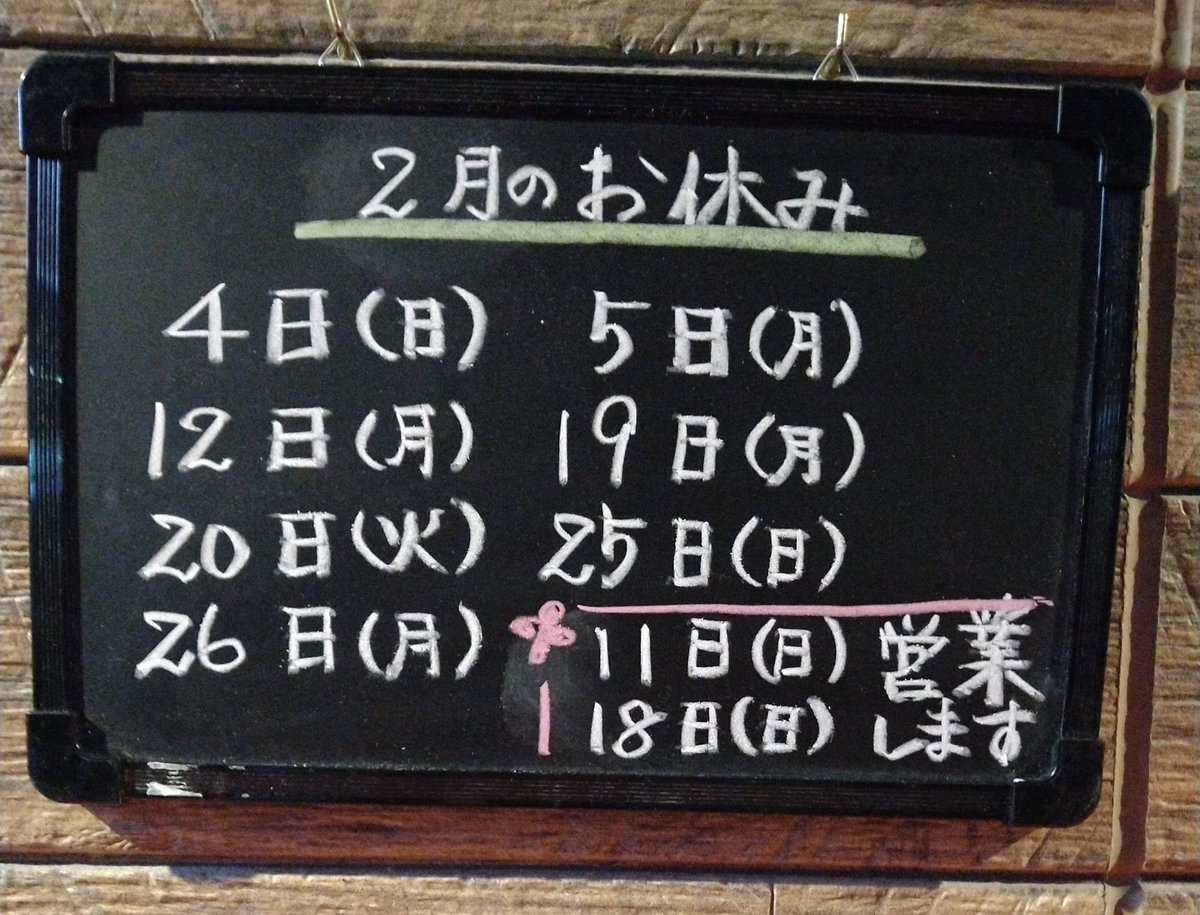 2月のお休み
4日(日) 5日(月)
12日(月) 19日(月)
20日(火) 25日(日)
26日(月)
11日(日) 営業
18日(日) します